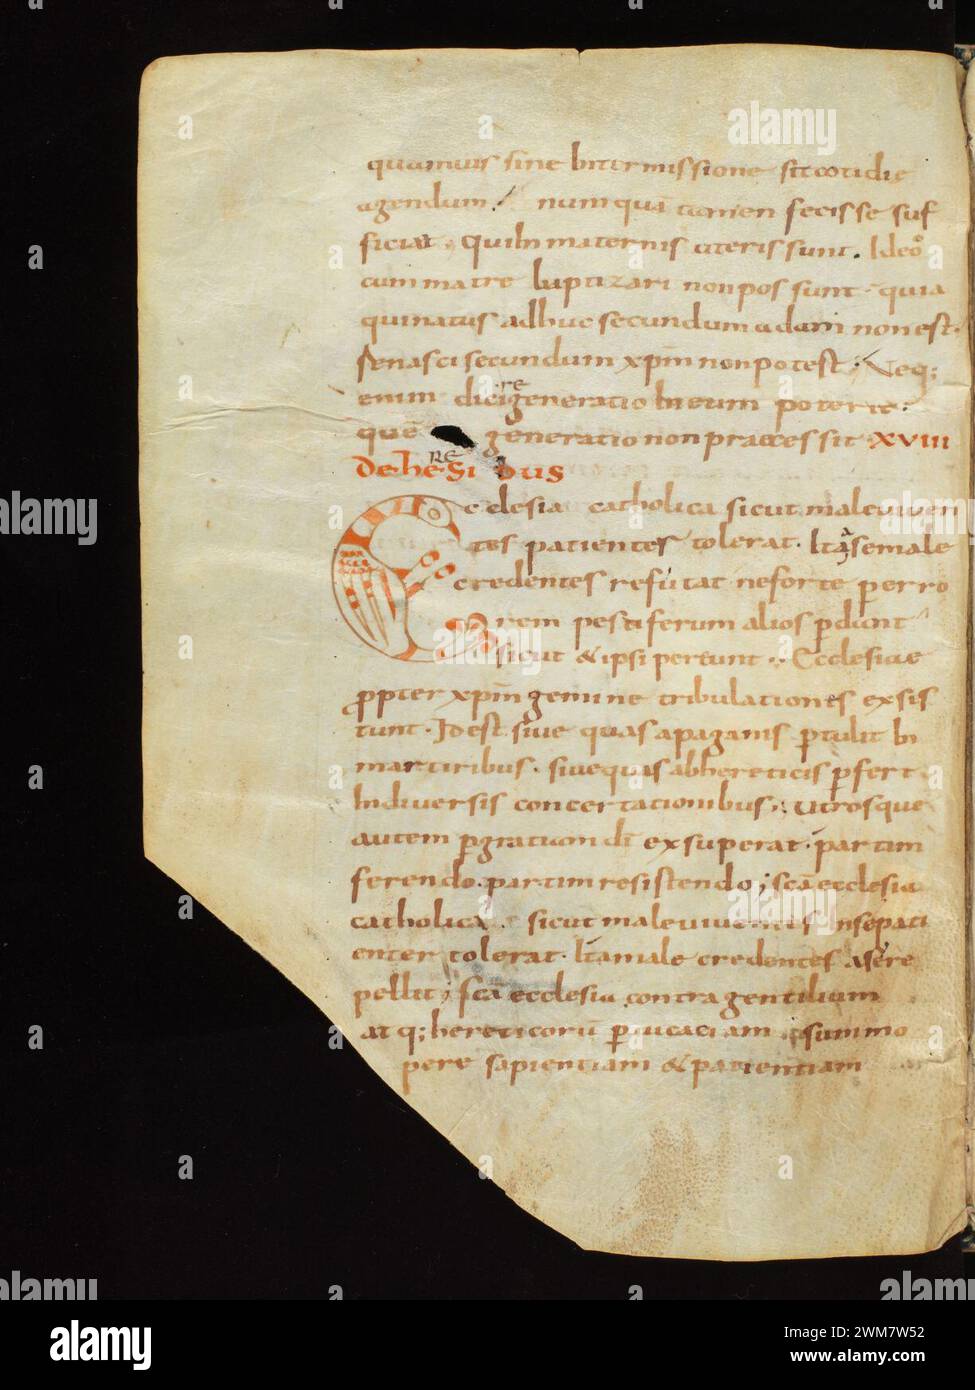 quamuis sine intermissione sit cotidie
agendum. numquā tamen fecisse suf
ficiat, qui in maternis uteris sunt. Ideo
cum matre baptizari non possunt. quia
qui natus adhuc secundum adam non est.
renasci secundum xp̄m non potest; Neq;
enim dici regeneratio in eum poterit.
quē generatio non praecessit XVIII
De heRESIbus
Ecclesia catholica sicut male viven
tes patienter tolerat. Ita & se male
credentes refutat ne forte per erro
rem pestiferum alios perdant
sicut & ipsi pereunt. Ecclesiae
propter xp̄m geminae tribulationes exsis
tunt. Id est sive quas a paganis ꝑtulit in
martiribus. sive quas ab hereticis ꝑfert
In diversis concertationibus; utrosque
autem ꝑ gratiam dī exsuperat. partim
ferendo. partim resistendo; scā ecclesia
catholica sicut male viventes in se pati
enter tolerat. Ita male credentes a se re
pellit; scā ecclesia contra gentilium
atq; hereticorū ꝑvicaciam summo
pere sapientiam & patientiam
alamy
Image ID: 2WM7W52
www.alamy.com